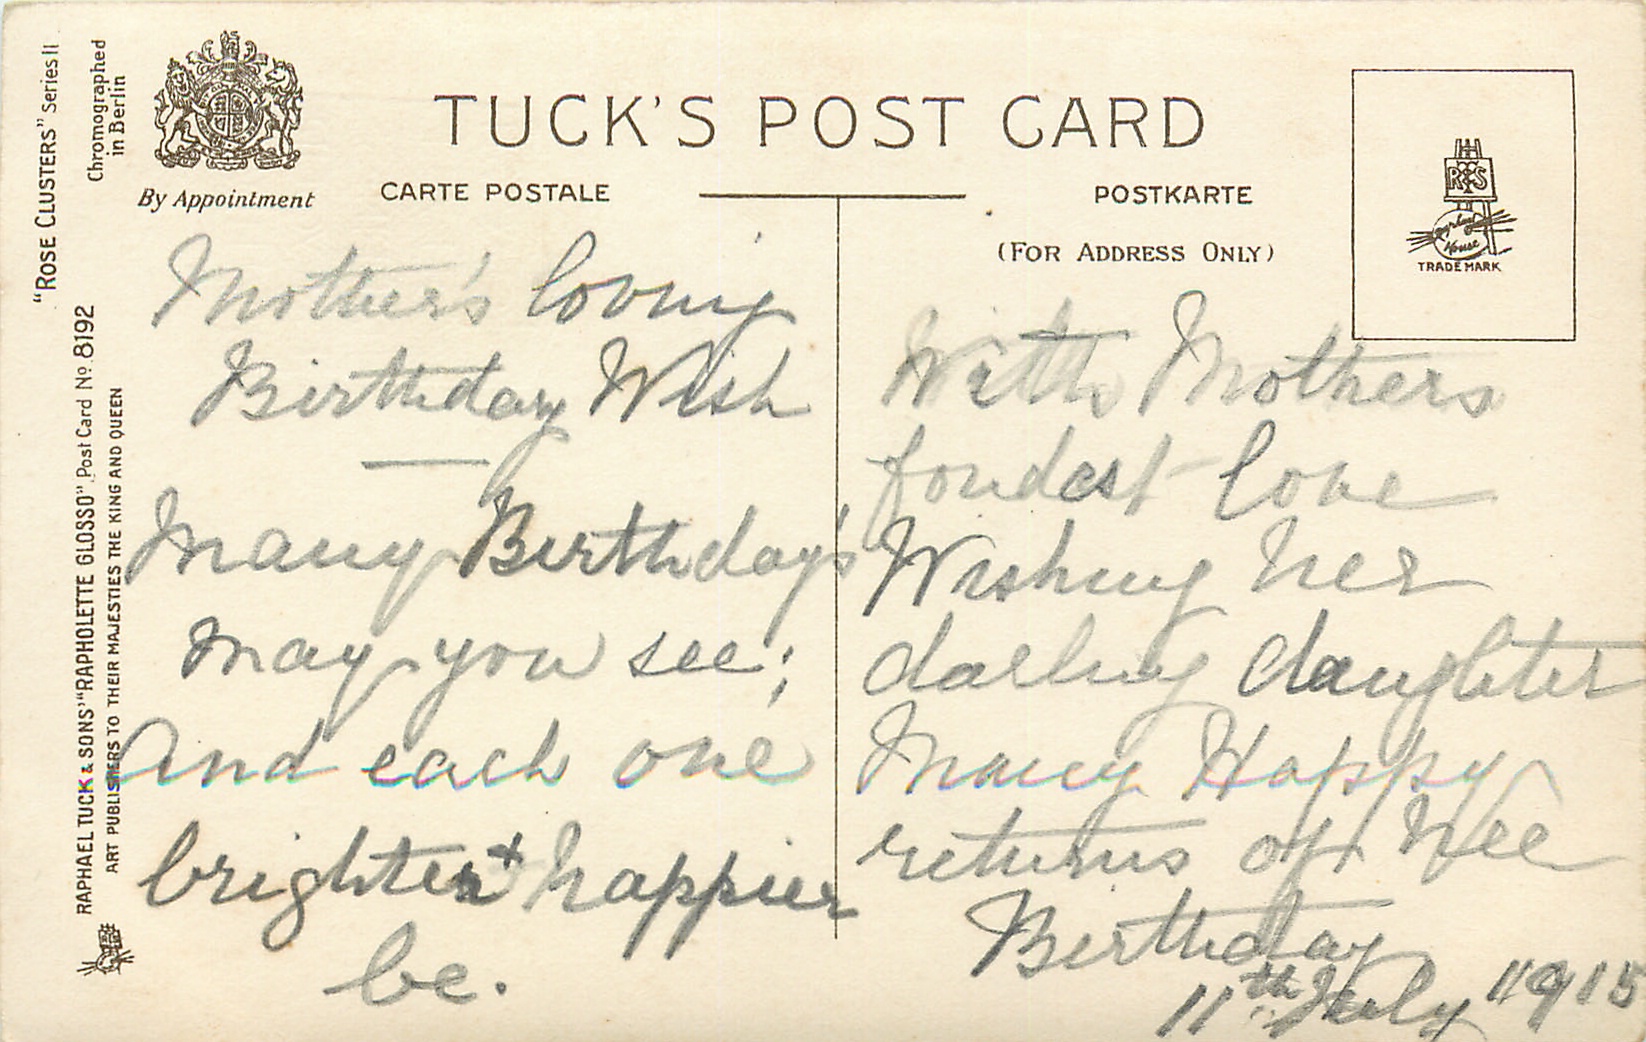 "ROSE CLUSTERS" Series II
Chromographed
in Berlin
RAPHAEL TUCK & SONS' "RAPHOLETTE GLOSSO" Post Card No. 8192
ART PUBLISHERS TO THEIR MAJESTIES THE KING AND QUEEN
By Appointment
TUCK'S POST CARD
CARTE POSTALE
POSTKARTE
(FOR ADDRESS ONLY)
R T & S
House
TRADE MARK
Mother's loving
Birthday Wish
Many Birthday's
may you see;
And each one
brighter + happier
be.
With Mothers
fondest love
Wishing her
darling daughter
Many Happy
returns of hee
Birthday
11th July 1915